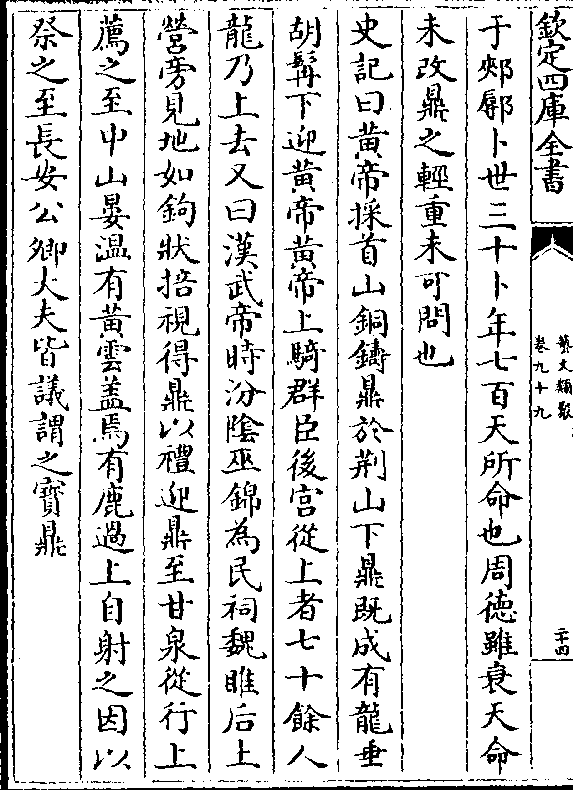 欽定四庫全書
藝文類聚
卷九十九
二十四
于郟鄏卜世三十卜年七百天所命也周德雖衰天命
未改鼎之輕重未可問也
史記曰黄帝採首山銅鑄鼎於荆山下鼎既成有龍垂
胡髯下迎黄帝黄帝上騎群臣後宫從上者七十餘人
龍乃上去又曰漢武帝時汾陰巫錦為民祠魏脽后土
營旁見地如鉤狀掊視得鼎以禮迎鼎至甘泉從行上
薦之至中山晏温有黄雲盖焉有鹿過上自射之因以
祭之至長安公卿大夫皆議謂之寳鼎